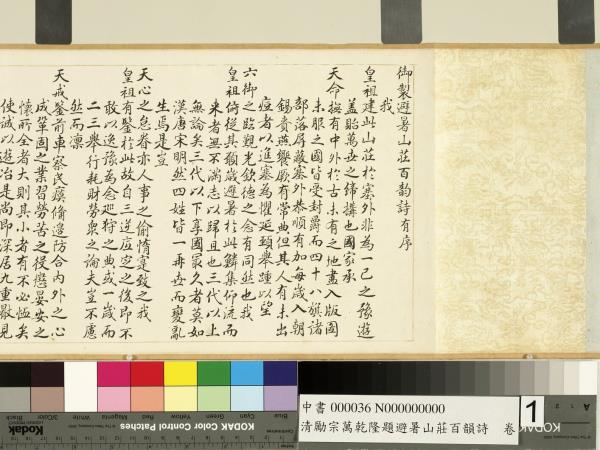 御製避暑山莊百韻詩有序
我
皇祖建此山莊於塞外非為一己之豫遊
蓋貽萬世之締構也國家承
天命撫有中外於古未有之地盡入版圖
未服之國皆受封爵而四十八旗諸
部落屏蔽塞外恭順有加每歲入朝
錫賚燕饗厥有常典但其人有未出
痘者以進塞為懼延頸舉踵以望
六御之臨覲光欽德之念有同然也我
皇祖俯從其願歲避暑於此鱗集仰流而
來者無不滿志以歸且也三代以上
無論矣三代以下享國最久者莫如
漢唐宋明然四姓皆一再世而變亂
生焉是豈
天心之怠眷亦人事之偷惰寔致之我
皇祖有鑒於此故自三逆底定之後即不
敢以逸豫為念巡狩之典或一歲而
二三舉行耗財勞眾之論夫豈不慮
然而凜
天戒鑒前車察民瘼備邊防合內外之心
成鞏固之業習勞苦之役懲晏安之
懷所全者大則其小者有不必恤矣
使誠以遊冶是尚即深居九重厭見
KODAK Color Control Patches
Blue
Cyan
Green
Yellow
Red
Magenta
White
3/Color
Black
中書 000036 N000000000
清勵宗萬乾隆題避暑山莊百韻詩 卷
1
KODAK